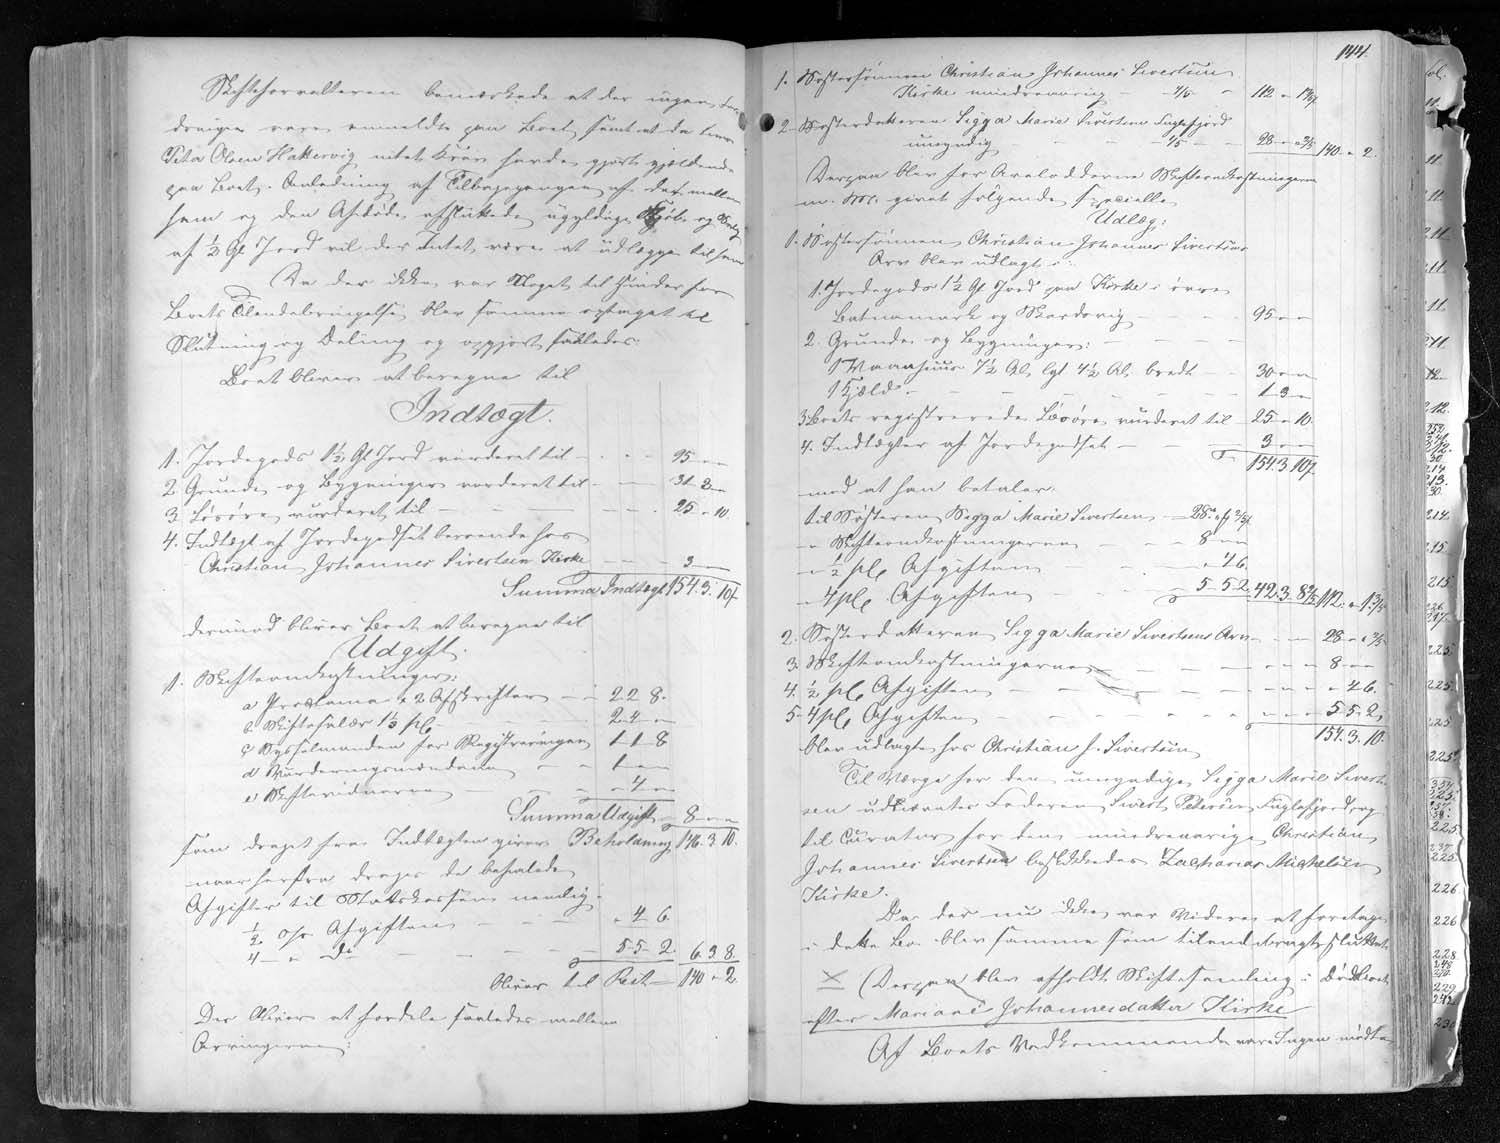 Skifteforvalteren bemærkede at der ingen For-
dringer vare anmeldte paa Boet, samt at da
Peta Olsen Hattervig intet Krav havde gjort gjældende
paa Boet i Anledning af Tilbagegangen af det mellem
ham og den Afdøde afsluttede ugyldige Kjøb og Salg
af ½ Gl Jord vil der Intet være at udlægge til ham
Da der ikke var Noget til Hinder for
Boets Tilendebringelse, blev samme optaget til
Slutning og Deling og opgjort saaledes:
Boet bliver at beregne til
Indtægt.
1. Jordegods 1½ Gl Jord vurderet til 95 " "
2. Grunde og Bygninger vurderet til 31 3 "
3. Løsøre vurderet til 25 " 10.
4. Indtægt af Jordegodset beroende hos
Christian Johannes Sivertsen Kirke 3
Summa Indtægt 154. 3. 10
derimod bliver Boet at beregne til
Udgift.
1. Skifteomkostninger:
a Proclama & 2 Afskrifter 2 2 8.
b Skiftesalær 1⅓ pC 2 4 "
c Sysselmanden for Registreringen 1 1 8
d Vurderingsmændene 1 "
e Skiftevidnerne " 4 "
Summa Udgift 8 " "
som draget fra Indtægten giver Beholdning 146. 3. 10.
naar herfra drages de befalede
Afgifter til Statskassen nemlig:
½ pC Afgiften " 4 6.
4 " do 5 5 2. 6. 3. 8.
bliver til Rest 140 " 2.
Der bliver at fordele saaledes mellem
Arvingerne:
144.
1. Søstersønnen Christian Johannes Sivertsen
Kirke mindreaarig 4/5 112 "
2. Søsterdatteren Sigga Marie Sivertsen Fuglefjord
umyndig 1/5 28 " 140 " 2.
Derpaa blev for Arvelodderne Skifteomkostningerne
m. M. givet følgende specielle
Udlæg:
1. Søstersønnen Christian Johannes Sivertsens
Arv blev udlagt i:
1. Jordegods 1½ Gl Jord paa Kirke i øvre
Batnamark og Skardsvig 95 " "
2. Grunde og Bygninger:
1 Vaanhuus 7½ Al. lgt 4½ Al. bredt 30 " "
1 Kjæld 1 3 "
3. Boets registrerede Løsøre vurderet til 25 " 10.
4. Indtægter af Jordegodset 3 " "
154. 3. 10.
mod at han betaler:
til Søsteren Sigga Marie Sivertsen 28
" Skifteomkostningerne 8 " "
" ½ pC Afgiften " 4 6.
" 4 pC Afgiften 5 5 2. 42. 3. 112.
2. Søsterdatteren Sigga Marie Sivertsens Arv 28
3. Skifteomkostningerne 8 " "
4. ½ pC Afgiften " 4 6.
5. 4 pC Afgiften 5 5 2.
154. 3. 10.
blev udlagte hos Christian J. Sivertsen
Til Værge for den umyndige Sigga Marie Sivert-
sen udnævntes Faderen Sivert Petersen Fuglefjord og
til Curator for den mindreaarige Christian
Johannes Sivertsen beskikkedes Zacharias Michelsen
Kirke.
Da der nu ikke var Videre at foretage
i dette Bo blev samme som tilendebragt sluttet.
X (Derpaa blev afholdt Skiftesamling i Dødsboet
efter Mariane Johannesdatter Kirke
Af Boets Vedkommende var Ingen mødt